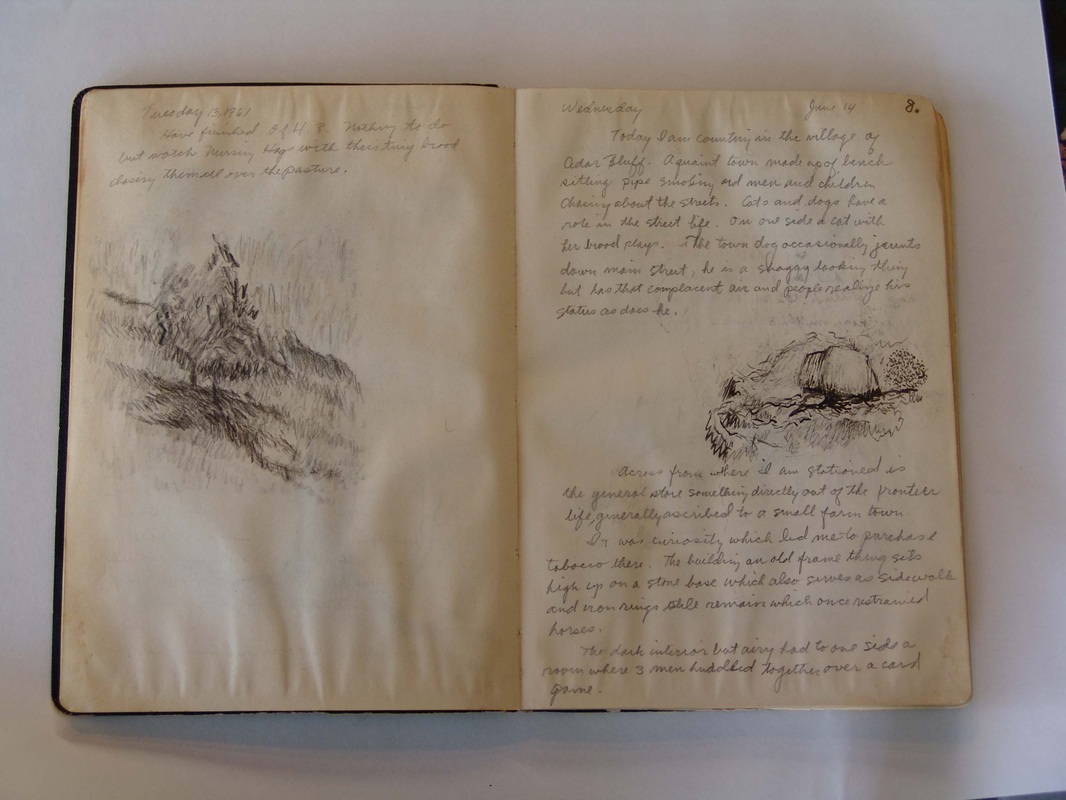 Tuesday 13, 1961
Have finished Nothing to do
but watch Nursing Hogs with their tiny brood
chasing them all over the pasture.
8.
Wednesday June 14
Today I am counting in the village of
Bluff. A quaint town made up of bench
sitting pipe smoking old men and children
chasing about the streets. Cats and dogs have a
role in the street life. On one side a cat with
her brood plays. The town dog occasionally jaunts
down main street, he is a shaggy looking thing
but has that complacent air and people realize his
status as does he.
Across from where I am stationed is
the general store something directly out of the frontier
life, generally ascribed to a small farm town
It was curiosity which led me to purchase
tobacco there. The building an old frame thing sets
high up on a stone base which also serves as sidewalk
and iron rings still remain which once restrained
horses.
The dark interior but airy had to one side a
room where 3 men huddled together over a card
game.